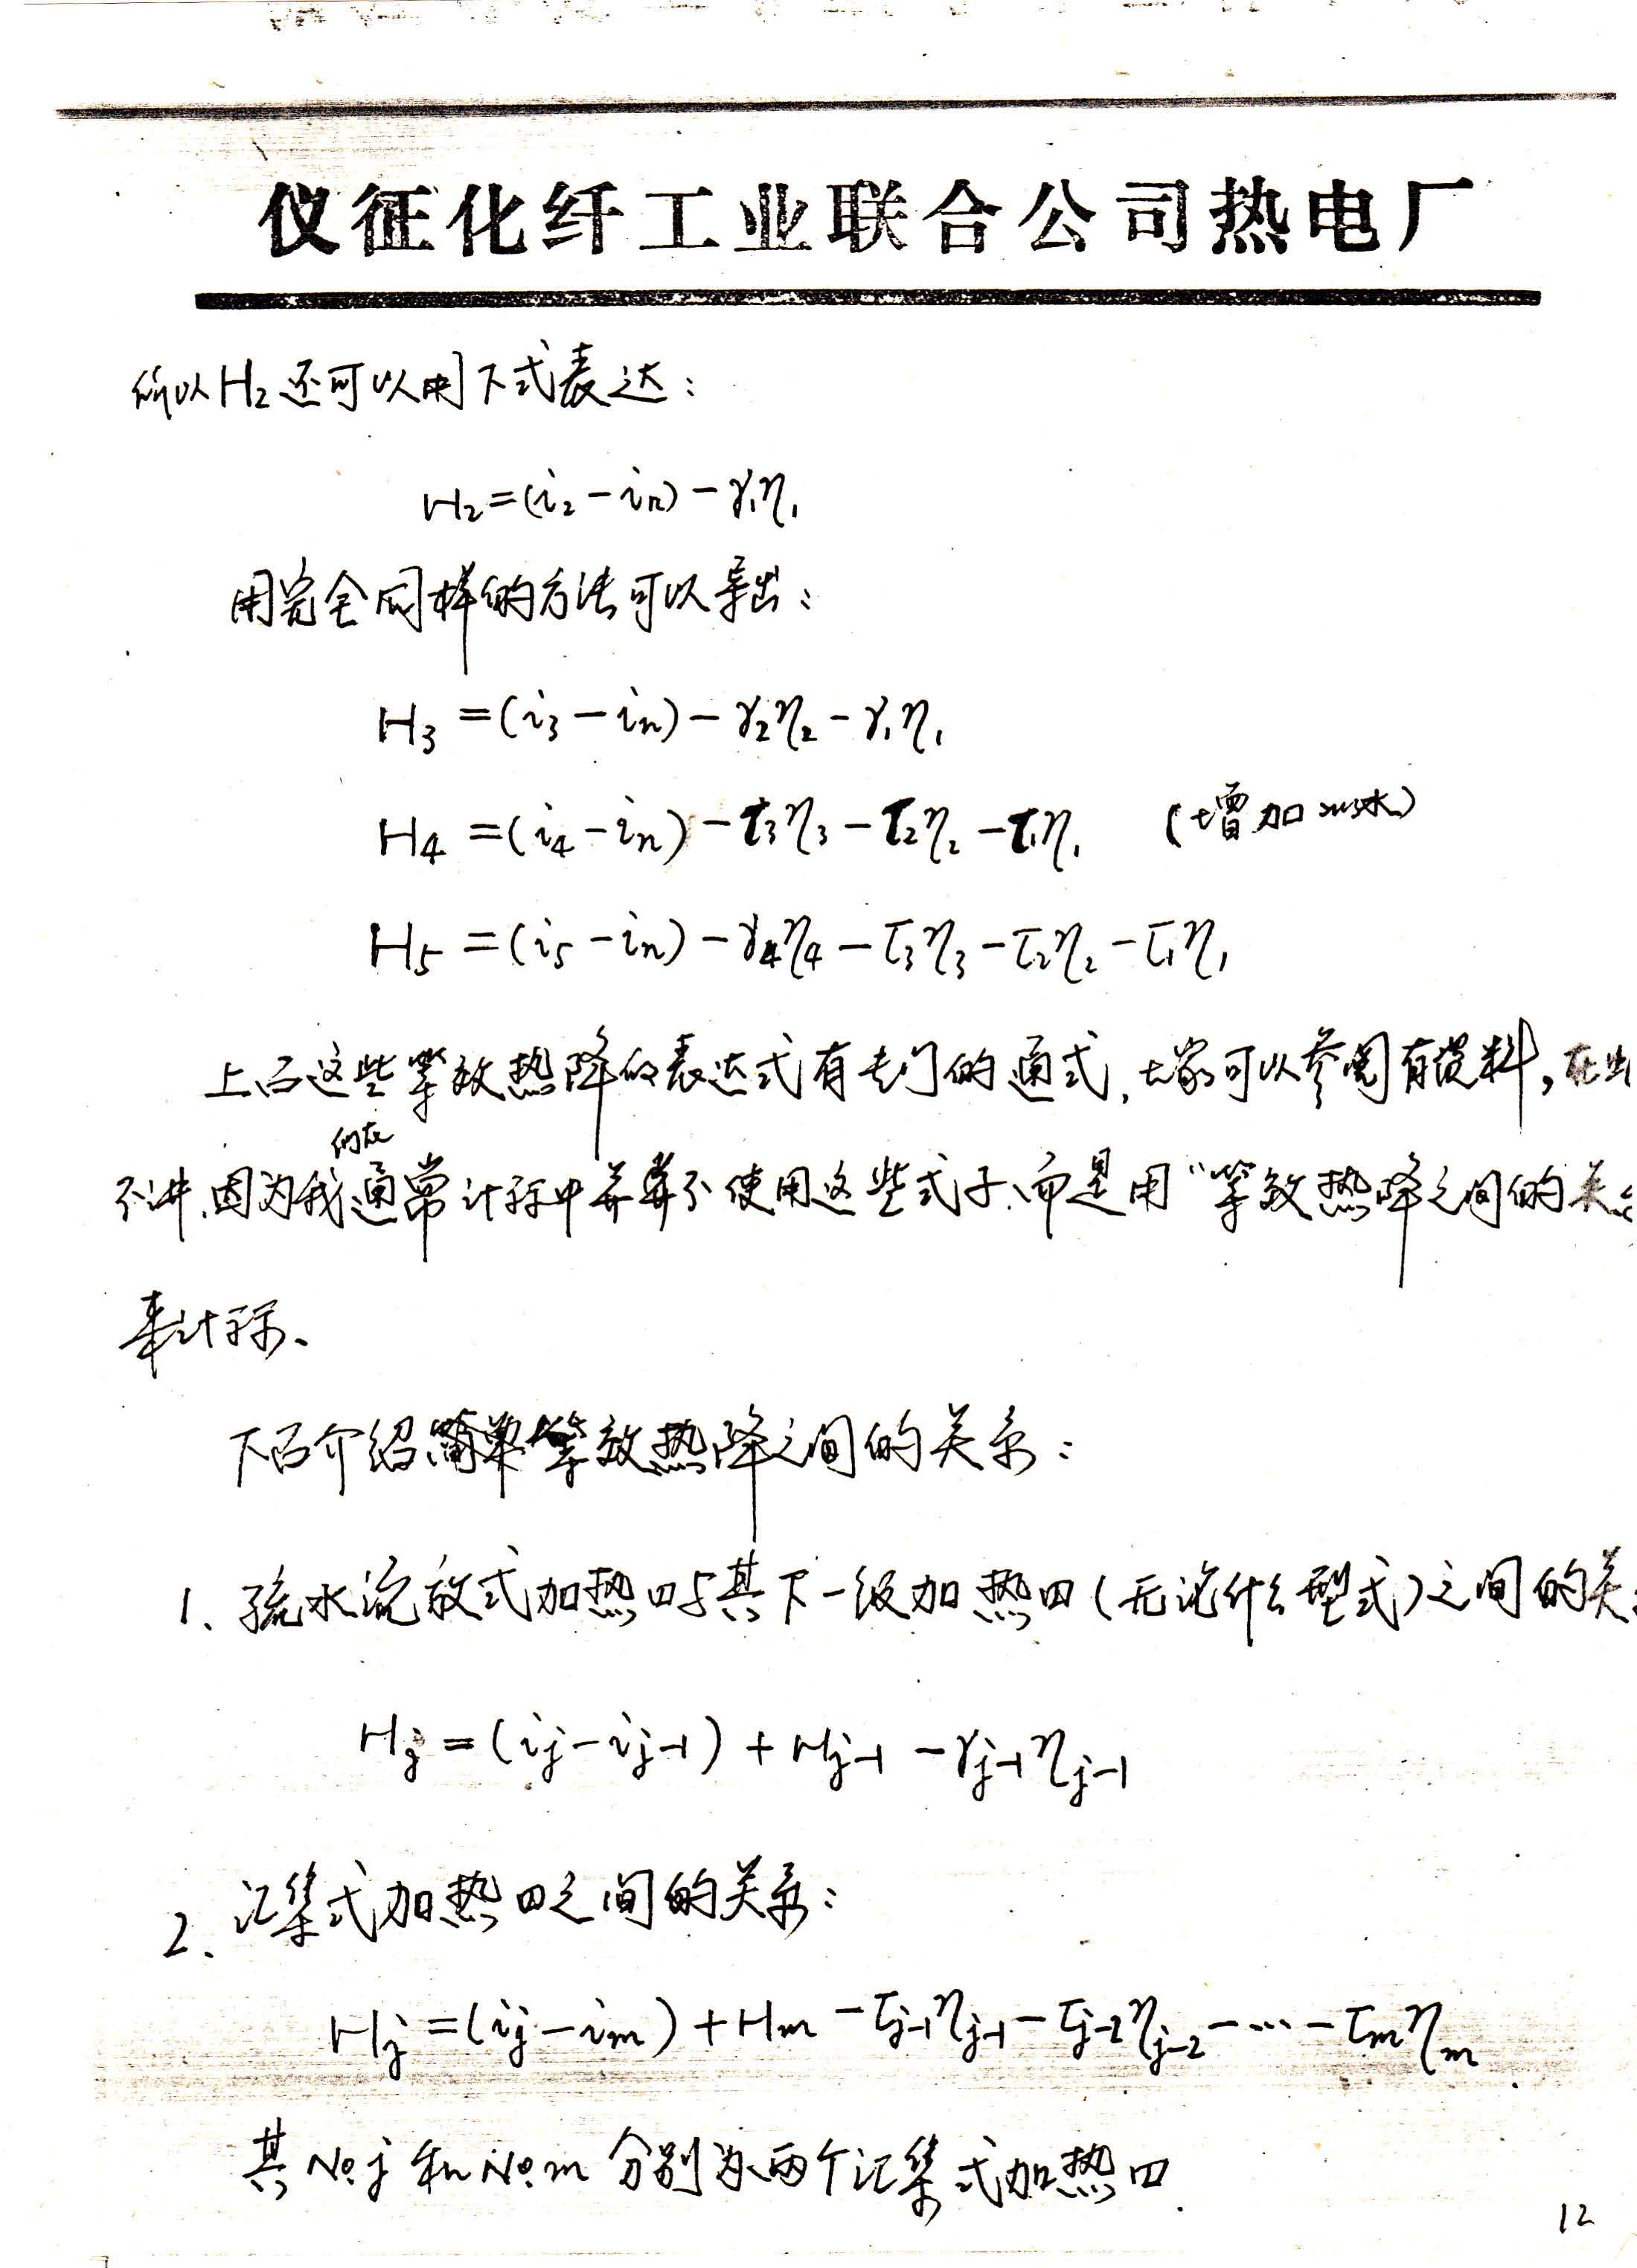 仪征化纤工业联合公司热电厂
所以H₂还可以用下式表达：
H₂=(i₂-iₙ)-γ₁η₁
用完全同样的方法可以导出：
H₃=(i₃-iₙ)-γ₂η₂-γ₁η₁
H₄=(i₄-iₙ)-τ₃η₃-τ₂η₂-τ₁η₁ (增加 水)
H₅=(i₅-iₙ)-γ₄η₄-τ₃η₃-τ₂η₂-τ₁η₁
上面这些等效热降的表达式有专门的通式，大家可以参阅有关资料，在此
们在
不讲，因为我通常计算中并不使用这些式子，而是用“等效热降之间的关
来计算、
下面介绍简单等效热降之间的关系：
1、疏水流放式加热四与其下一级加热四(无论什么型式)之间的关
Hⱼ=(iⱼ-iⱼ₋₁)+Hⱼ₋₁-γⱼ₋₁ηⱼ₋₁
2、汇集式加热四之间的关系：
Hⱼ=(iⱼ-iₘ)+Hₘ-τⱼ₋₁ηⱼ₋₁-τⱼ₋₂ηⱼ₋₂-…-τₘηₘ
其No.j和No.m分别为两个汇集式加热四.
12